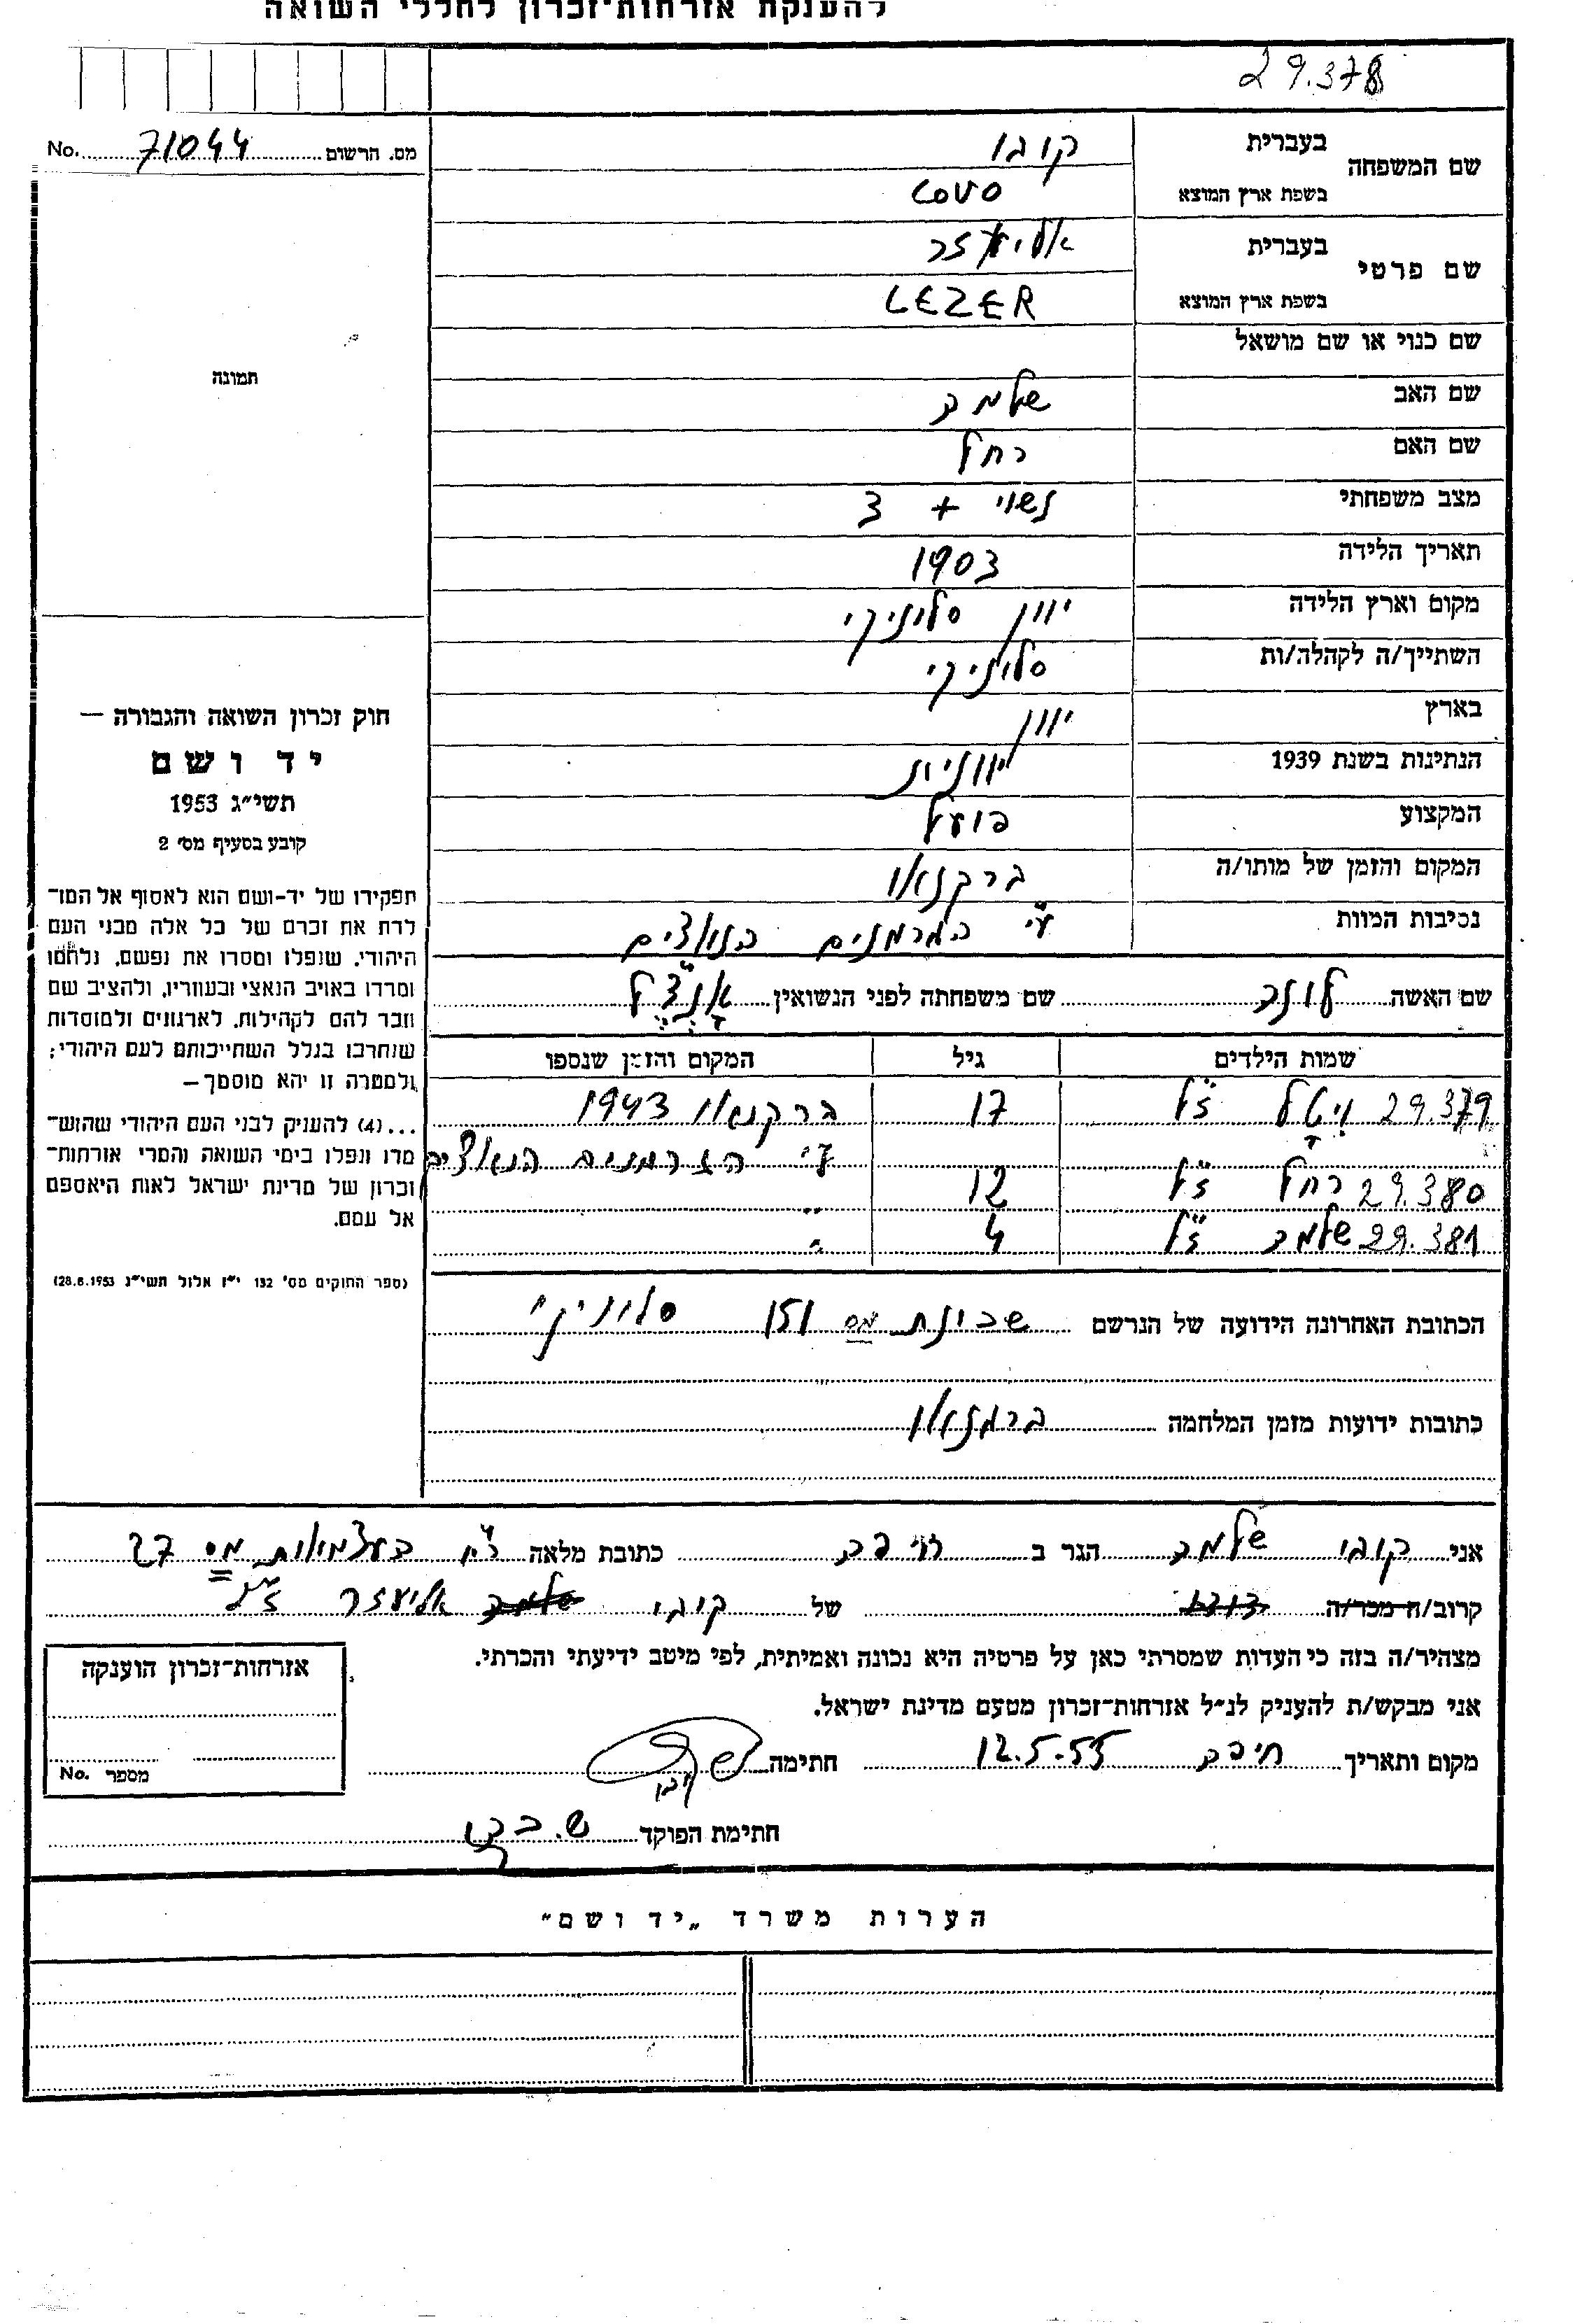 להענקת אזרחות־זכרון לחללי השואה
29.378
No. 71044 מס. הרשום
שם המשפחה
בעברית קובו
בשפת ארץ המוצא COVO
שם פרטי
בעברית אליעזר
בשפת ארץ המוצא LEZER
שם כנוי או שם מושאל
תמונה
שם האב שלמה
שם האם רחל
מצב משפחתי נשוי + 3
תאריך הלידה 1903
מקום וארץ הלידה יוון סלוניקי
השתייך/ה לקהלה/ות סלוניקי
בארץ יוון
הנתינות בשנת 1939 יוונית
המקצוע פועל
המקום והזמן של מותו/ה ברקנאו
נסיבות המוות ע״י הגרמנים הנאצים
שם האשה לונה שם משפחתה לפני הנשואין
שמות הילדים גיל המקום והזמן שנספו
29.379 ויטל ז״ל 17 ברקנאו 1943
ע״י הגרמנים הנאצים
29.380 רחל ז״ל 12 "
29.381 שלמה ז״ל 4 "
הכתובת האחרונה הידועה של הנרשם שכונת מס 151 סלוניקי
כתובות ידועות מזמן המלחמה
חוק זכרון השואה והגבורה —
יד ושם
תשי״ג 1953
קובע בסעיף מס׳ 2
תפקידו של יד-ושם הוא לאסוף אל המו־
לדת את זכרם של כל אלה מבני העם
היהודי, שנפלו ומסרו את נפשם, נלחמו
ומרדו באויב הנאצי ובעוזריו, ולהציב שם
וזכר להם לקהילות, לארגונים ולמוסדות
שנחרבו בגלל השתייכותם לעם היהודי;
ולמטרה זו יהא מוסמך—
...(4) להעניק לבני העם היהודי שהוש־
מדו ונפלו בימי השואה והמרי אזרחות־
זכרון של מדינת ישראל לאות היאספם
אל עמם.
(ספר החוקים מס׳ 132 י״ז אלול תשי״ג 28.8.1953)
אני קובו שלמה הגר ב חיפה כתובת מלאה רח העצמאות מס 27
קרוב/ה מכר/ה של קובו שלמה אליעזר ז״ל
מצהיר/ה בזה כי העדות שמסרתי כאן על פרטיה היא נכונה ואמיתית, לפי מיטב ידיעתי והכרתי.
אני מבקש/ת להעניק לנ״ל אזרחות־זכרון מטעם מדינת ישראל.
מקום ותאריך חיפה 12.5.55 חתימה
חתימת הפוקד
אזרחות־זכרון הוענקה
No. מספר
הערות משרד „יד ושם״